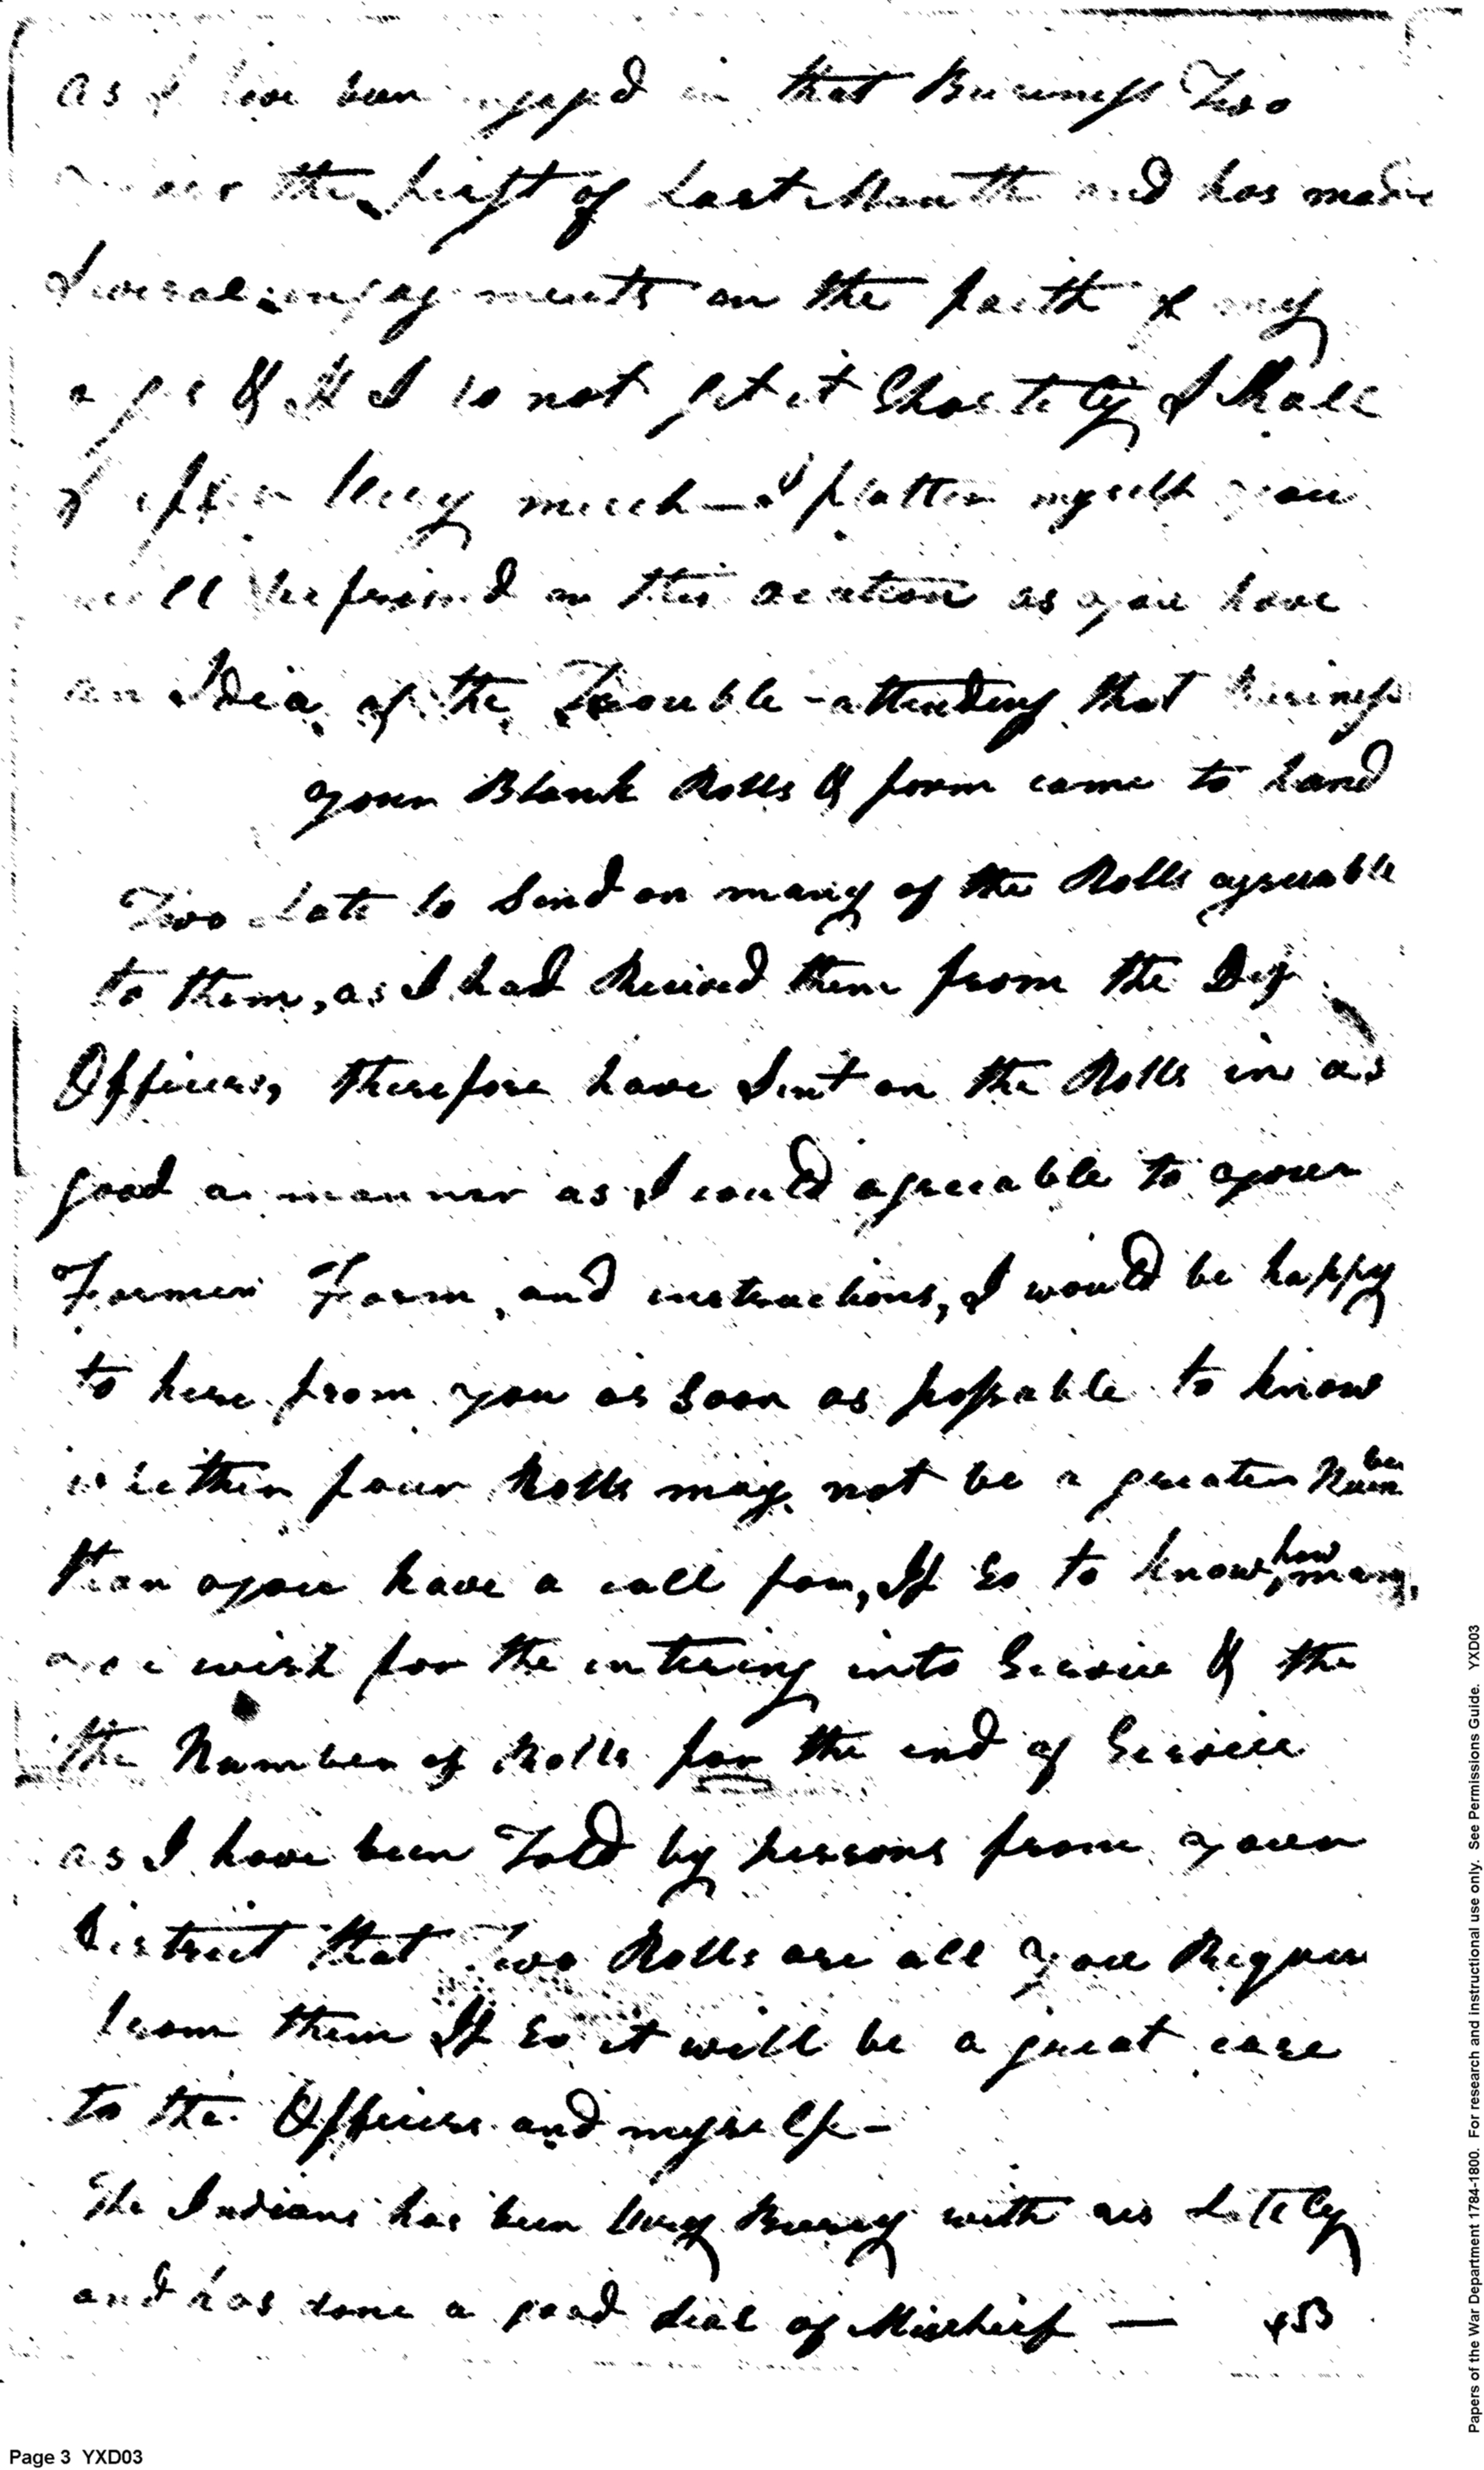 as I have been ingaged in that Business Two
the first of Last Month and has made
Several ingagements on the faith of my
& If I do not get it Shortely I Shall
Very much — I flatter myself you
will befriend on this ocation as you have
an Idea of the Trouble attending that Business
your Blank Rolls & form came to hand
Two Late to Send on many of the Rolls agreeable
to them, as I had Recived them from the
Officers, therefore have Sent on the Rolls in as
good a manner as I could agreeable to your
Former Form, and instructions, I would be happy
to here from you as soon as possable to know
whether four Rolls may not be a greater Number
than you have a call for, If So to know, how many,
you wish for the intering into Service & the
the Number of Rolls for the end of Service
as I have been Told by persons from your
District that Two Rolls are all you Requier
from them If so it will be a great ease
to the Officers and myself —
The Indians has been Very Buesy with us Lately
and has done a good deal of Mischief —
Page 3 YXD03
Papers of the War Department 1784-1800. For research and instructional use only. See Permissions Guide. YXD03